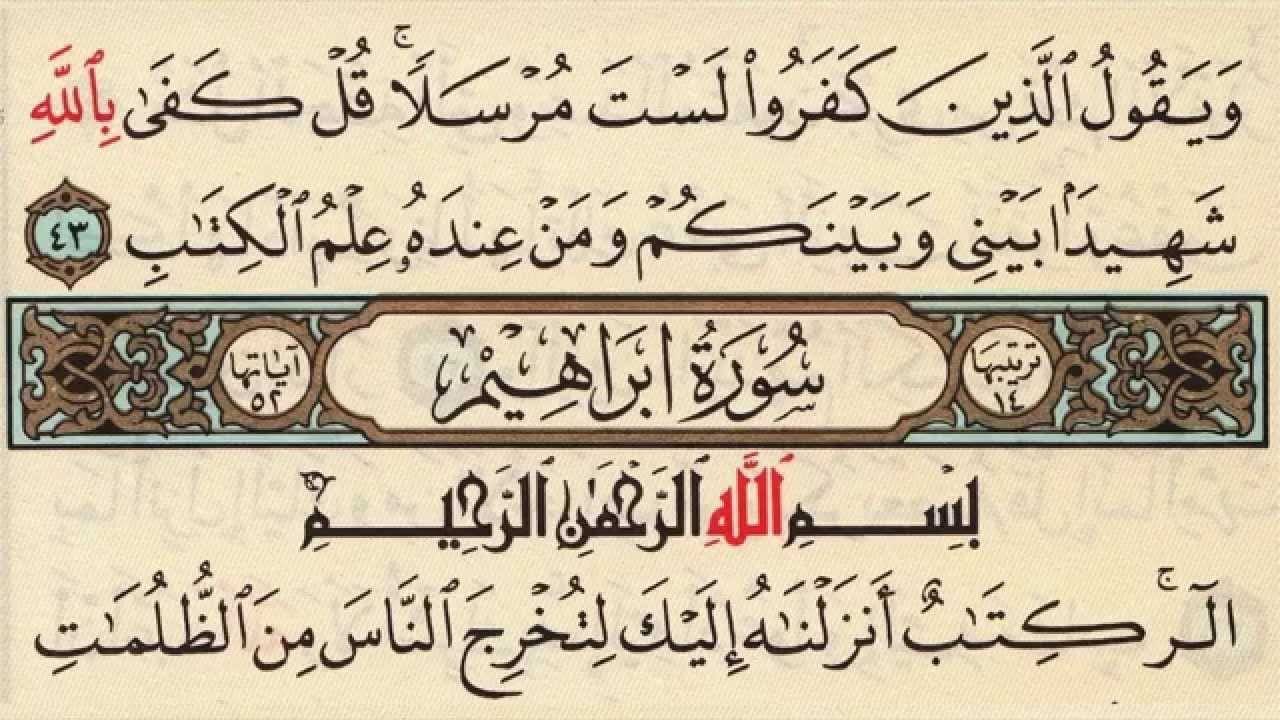 وَيَقُولُ ٱلَّذِينَ كَفَرُوا۟ لَسْتَ مُرْسَلًاۚ قُلْ كَفَىٰ بِٱللَّهِ
شَهِيدَۢا بَيْنِى وَبَيْنَكُمْ وَمَنْ عِندَهُۥ عِلْمُ ٱلْكِتَٰبِ ٤٣
ترتيبها
١٤
سُورَةُ ابْرَاهِيْمْ
آياتها
٥٢
بِسْمِ ٱللَّهِ ٱلرَّحْمَٰنِ ٱلرَّحِيمِ
الٓرۚ كِتَٰبٌ أَنزَلْنَٰهُ إِلَيْكَ لِتُخْرِجَ ٱلنَّاسَ مِنَ ٱلظُّلُمَٰتِ